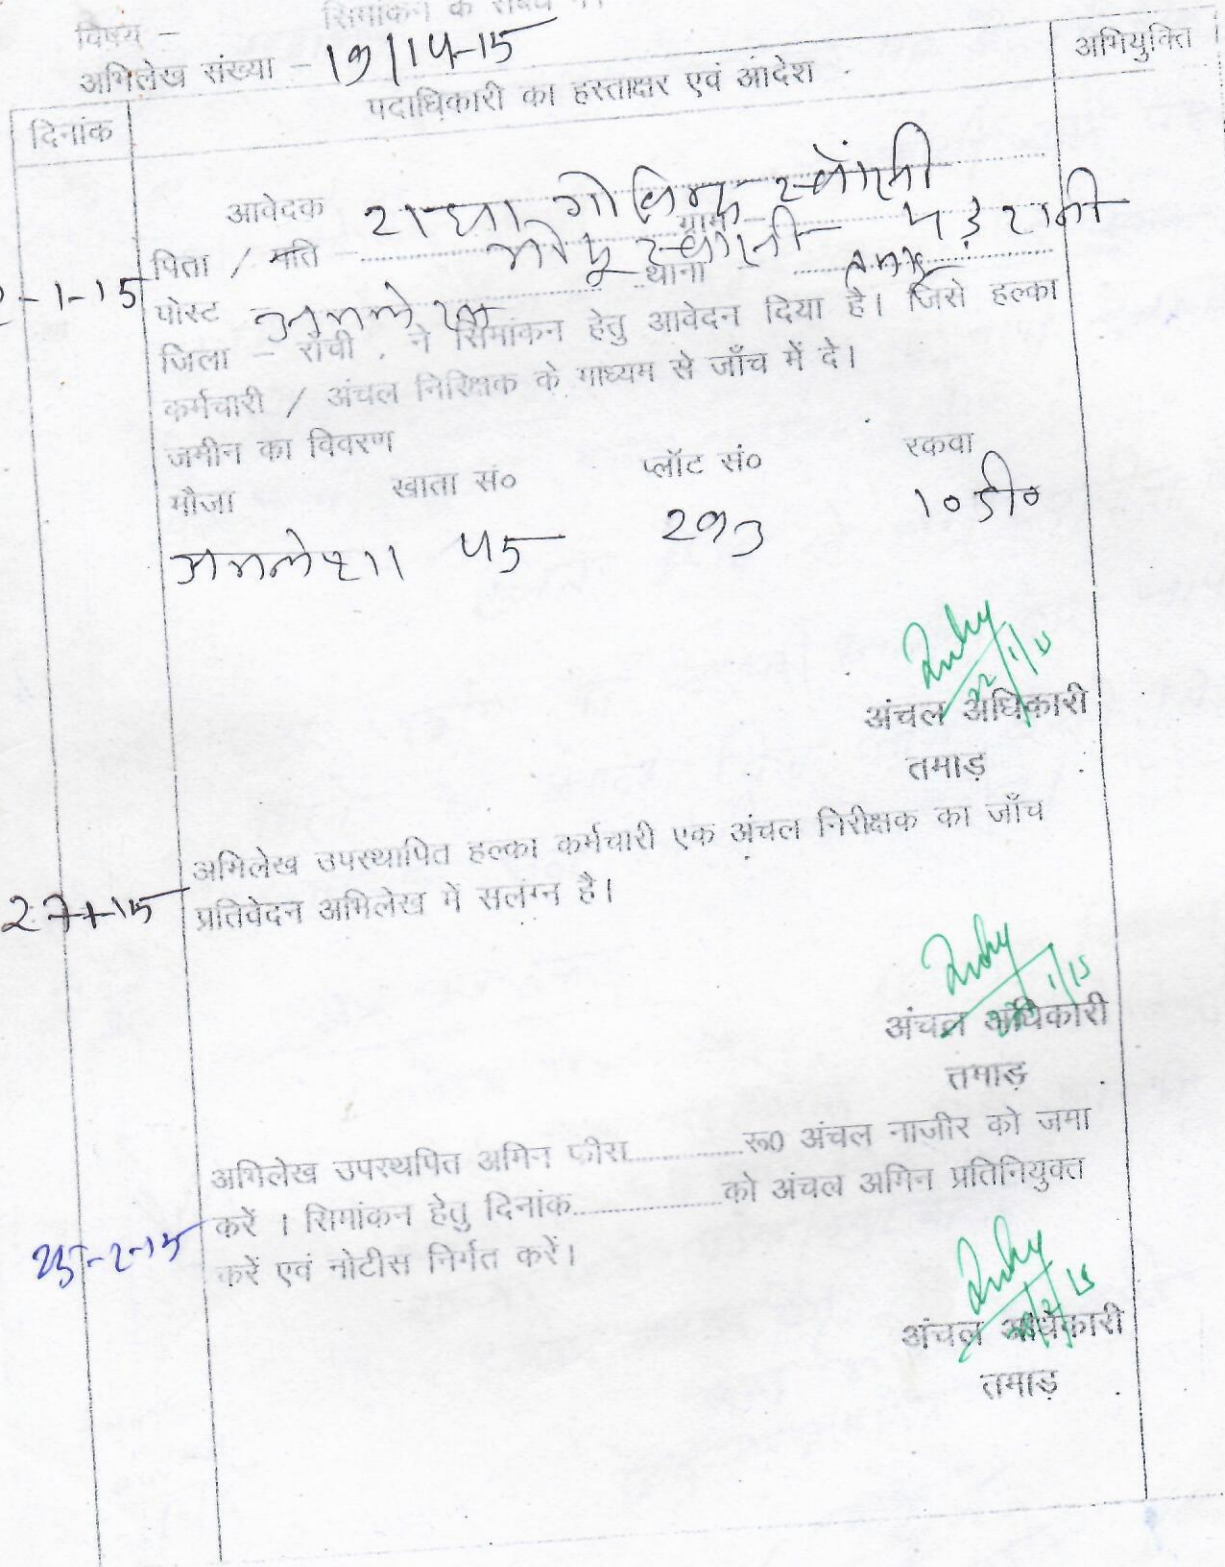 विषय – सिमांकन के संबंध में।
अभिलेख संख्या – 19/14-15
दिनांक
पदाधिकारी का हस्ताक्षर एवं आदेश
अभियुक्ति
आवेदक
पिता / पति – ग्राम –
-1-15
पोस्ट थाना –
जिला – राँची , ने सिमांकन हेतु आवेदन दिया है। जिसे हल्का
कर्मचारी / अंचल निरिक्षक के माध्यम से जाँच में दे।
जमीन का विवरण
मौजा खाता सं० प्लॉट सं० रकवा
अमलेशा 45 293 10 डी०
22/1/15
अंचल अधिकारी
तमाड़
अभिलेख उपस्थापित हल्का कर्मचारी एक अंचल निरीक्षक का जाँच
27-1-15 प्रतिवेदन अभिलेख में सलंग्न है।
1/15
अंचल अधिकारी
तमाड़
अभिलेख उपस्थपित अमिन फीस..............रू0 अंचल नाजीर को जमा
करें । सिमांकन हेतु दिनांक..................को अंचल अमिन प्रतिनियुक्त
25-2-15 करें एवं नोटीस निर्गत करें।
अंचल अधिकारी
तमाड़